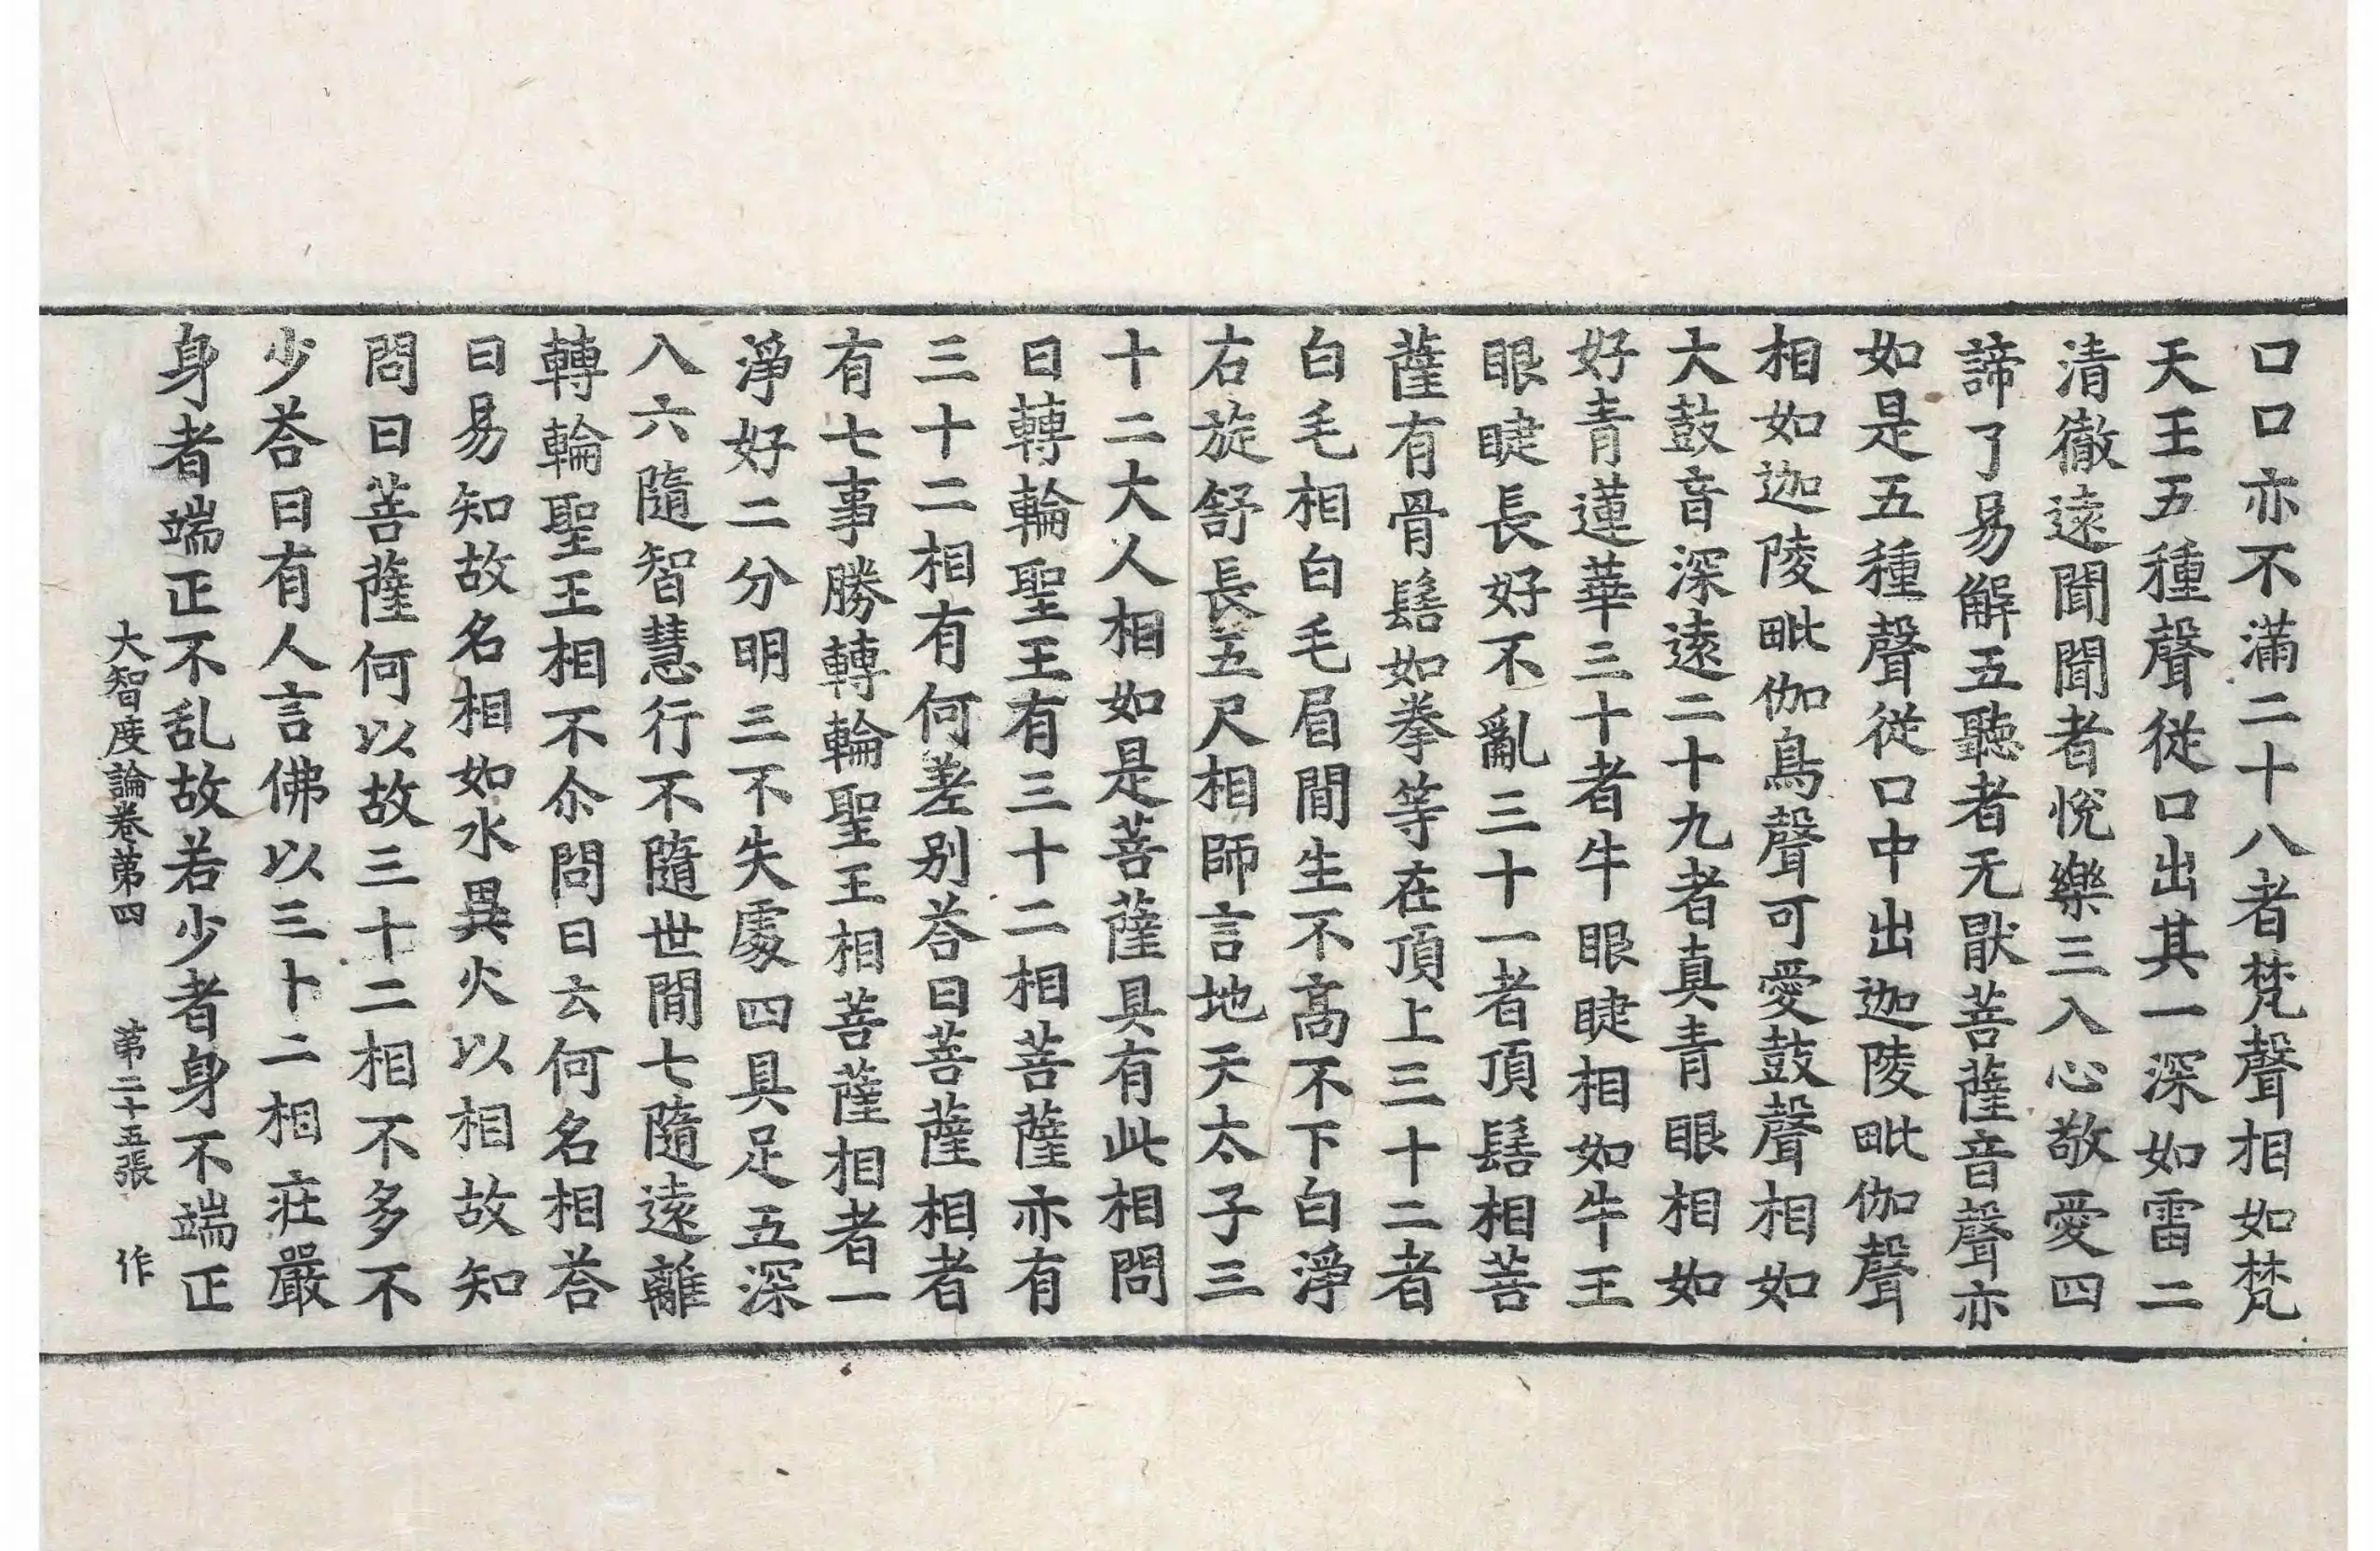 口口亦不滿二十八者梵聲相如梵
天王五種聲從口出其一深如雷二
清徹遠聞聞者悅樂三入心敬愛四
諦了易解五聽者无猒菩薩音聲亦
如是五種聲從口中出迦陵毗伽聲
相如迦陵毗伽鳥聲可愛鼓聲相如
大鼓音深遠二十九者真青眼相如
好青蓮華三十者牛眼睫相如牛王
眼睫長好不亂三十一者頂髻相菩
薩有骨髻如拳等在頂上三十二者
白毛相白毛眉間生不高不下白淨
右旋舒長五尺相師言地天太子三
十二大人相如是菩薩具有此相問
曰轉輪聖王有三十二相菩薩亦有
三十二相有何差别荅曰菩薩相者
有七事勝轉輪聖王相菩薩相者一
淨好二分明三不失處四具足五深
八六隨智慧行不隨世間七隨遠離
轉輪聖王相不尒問曰云何名相荅
曰易知故名相如水異火以相故知
問曰菩薩何以故三十二相不多不
少荅曰有人言佛以三十二相莊嚴
身者端正不乱故若少者身不端正
大智度論卷第四 第二十五張 作